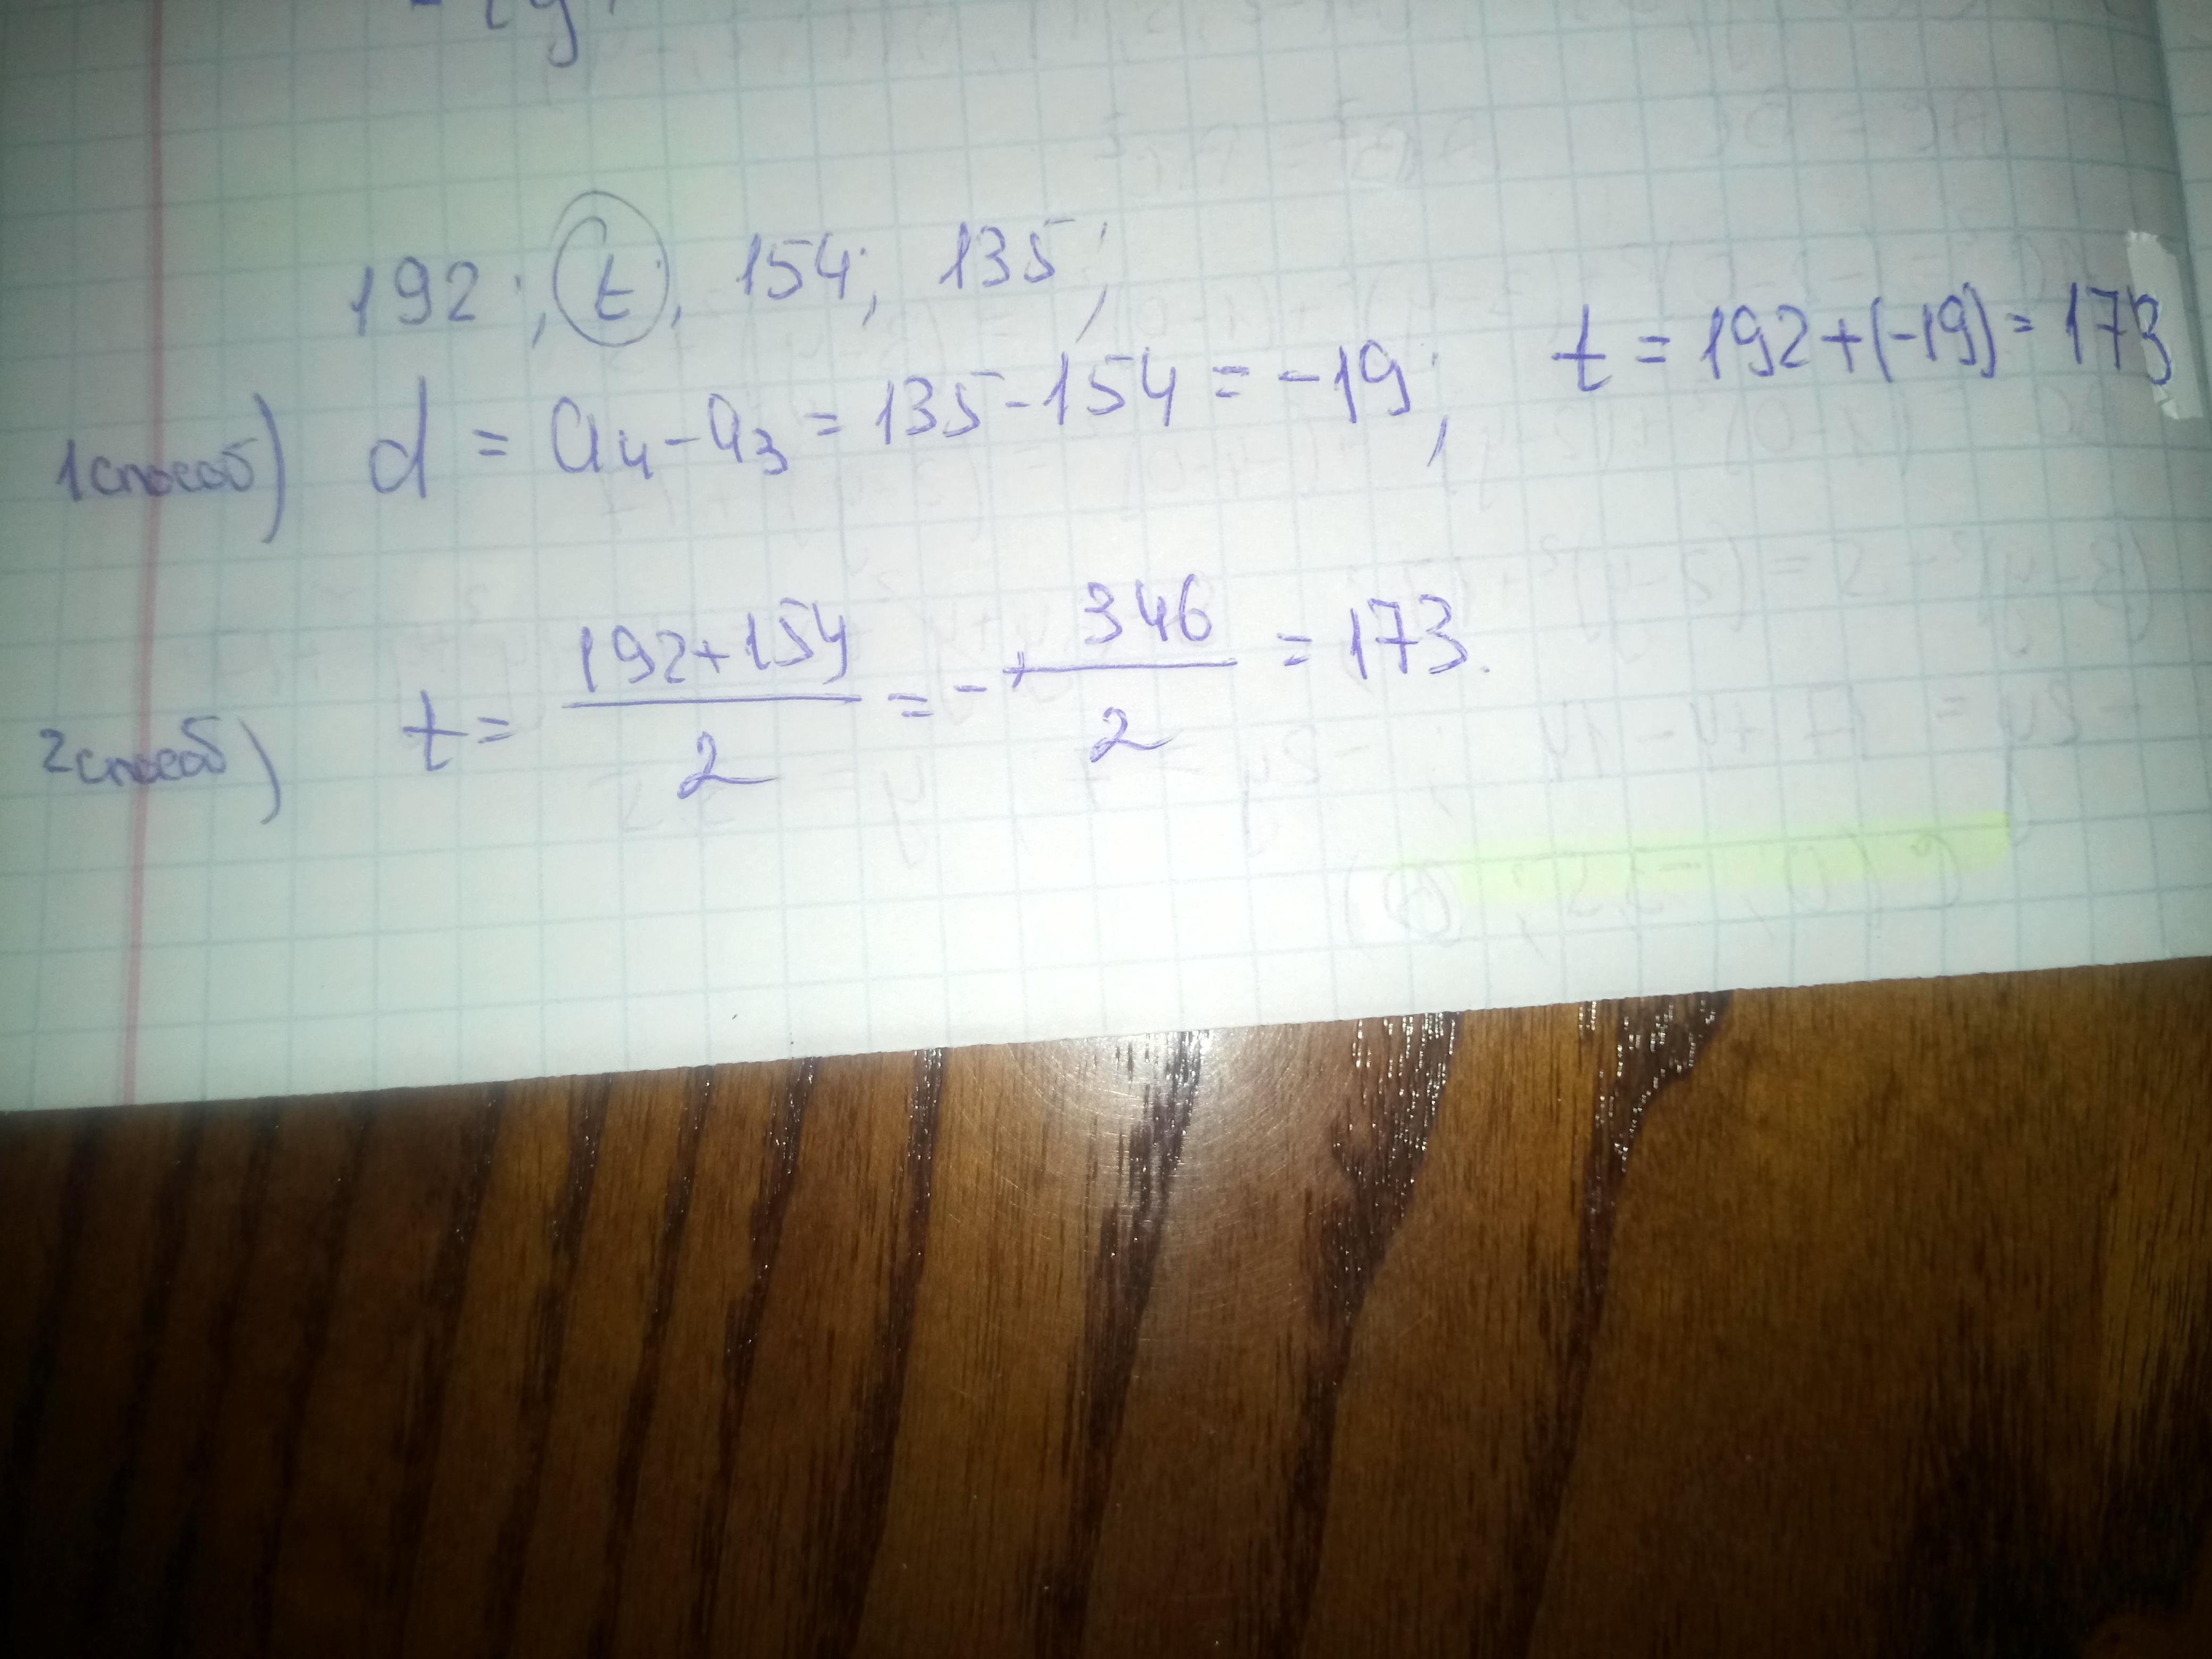 192; t; 154; 135;
1 способ) d = a₄ - a₃ = 135 - 154 = -19; t = 192 + (-19) = 173
2 способ) t = (192+154)/2 = 346/2 = 173.